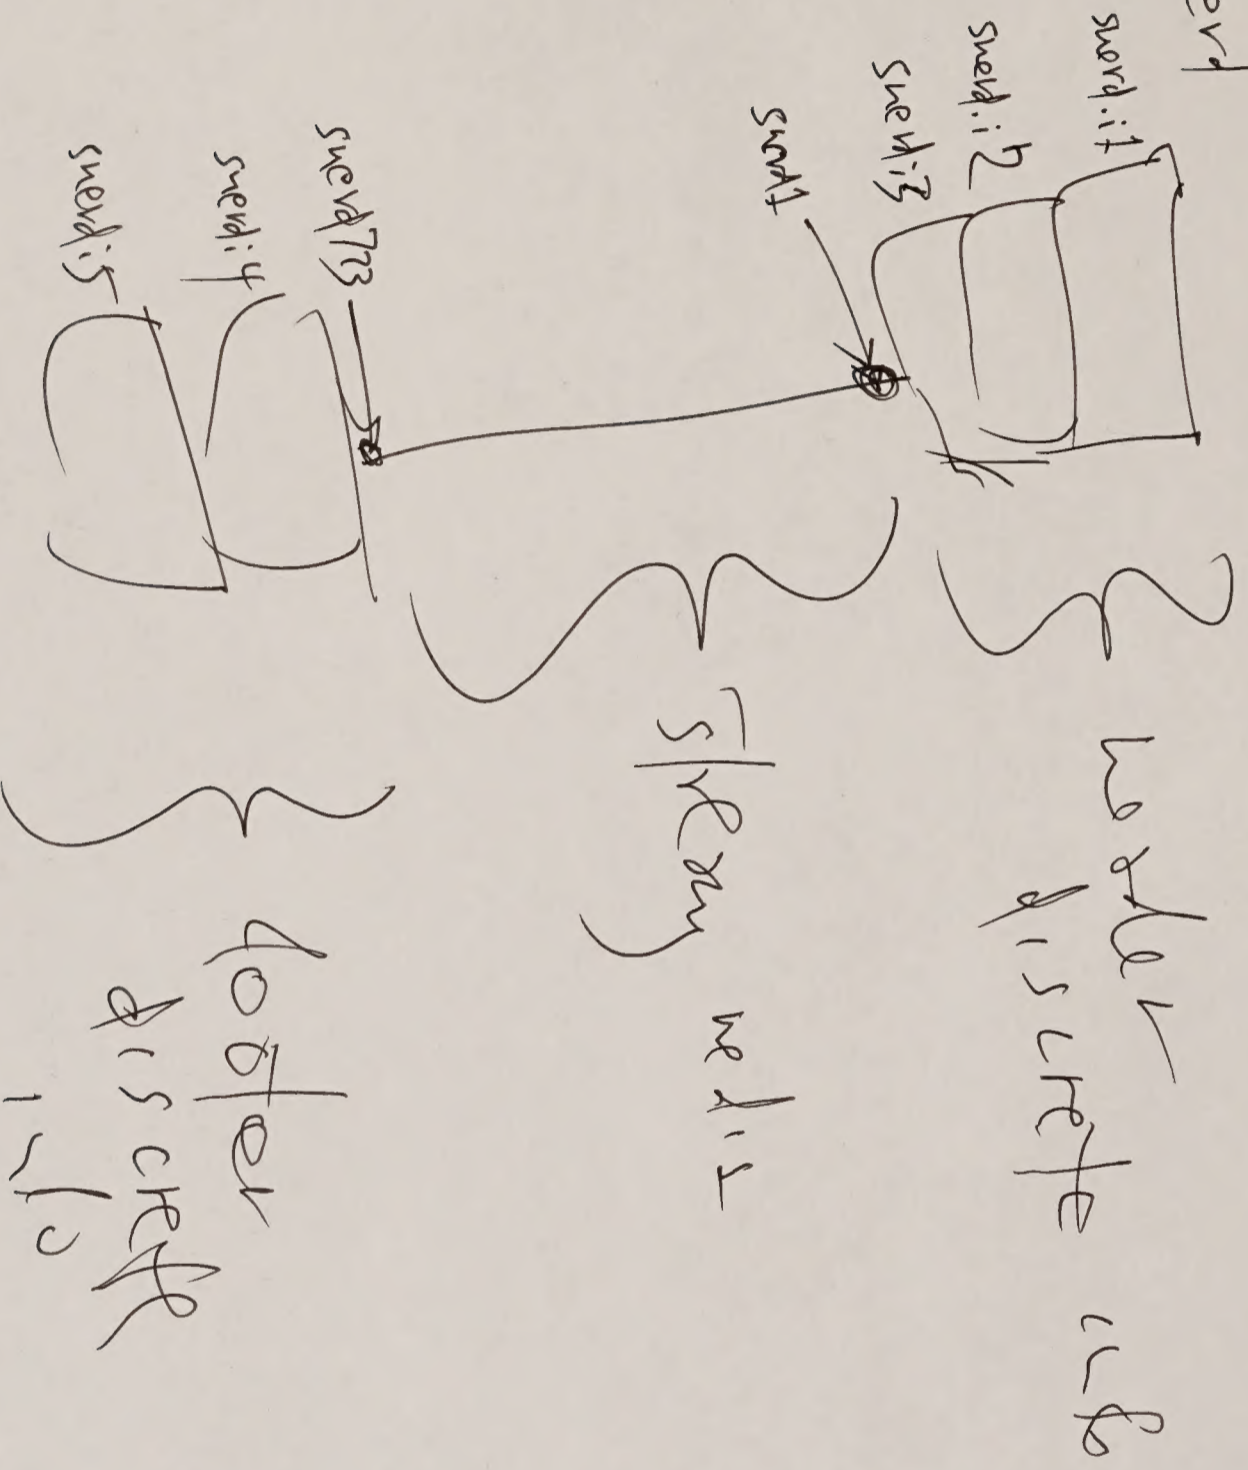 erd
snerd:i1
snerd:i2
snerd:i3
snerd1
snerd723
snerd:i4
snerd:i5
header
discrete info
stream media
footer
discrete
info